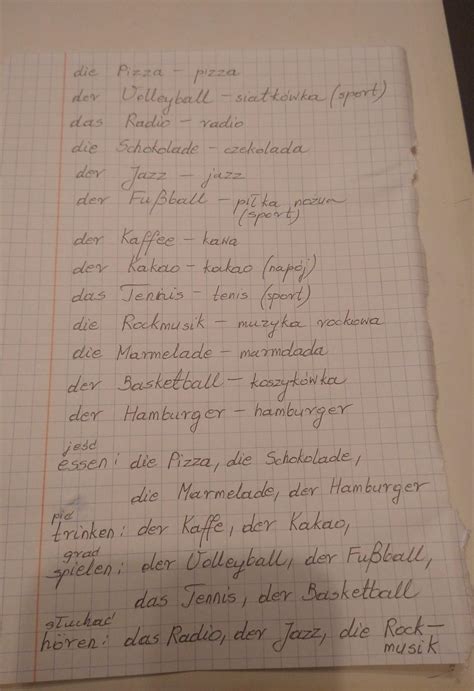 die Pizza - pizza
der Volleyball - siatkówka (sport)
das Radio - radio
die Schokolade - czekolada
der Jazz - jazz
der Fußball - piłka nożna
(sport)
der Kaffee - kawa
der Kakao - kakao (napój)
das Tennis - tenis (sport)
die Rockmusik - muzyka rockowa
die Marmelade - marmolada
der Basketball - koszykówka
der Hamburger - hamburger
jeść
essen: die Pizza, die Schokolade,
die Marmelade, der Hamburger
pić
trinken: der Kaffe, der Kakao,
grać
spielen: der Volleyball, der Fußball,
das Tennis, der Basketball
słuchać
hören: das Radio, der Jazz, die Rock-
musik